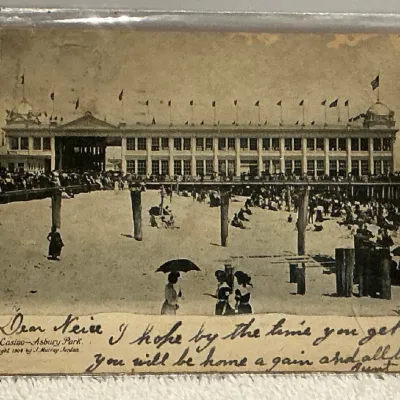 Dear Neice I hope by the time you get
Casino—Asbury Park.
ght 1904 by J. Murray Jordan
you will be home a gain and all
Aunt